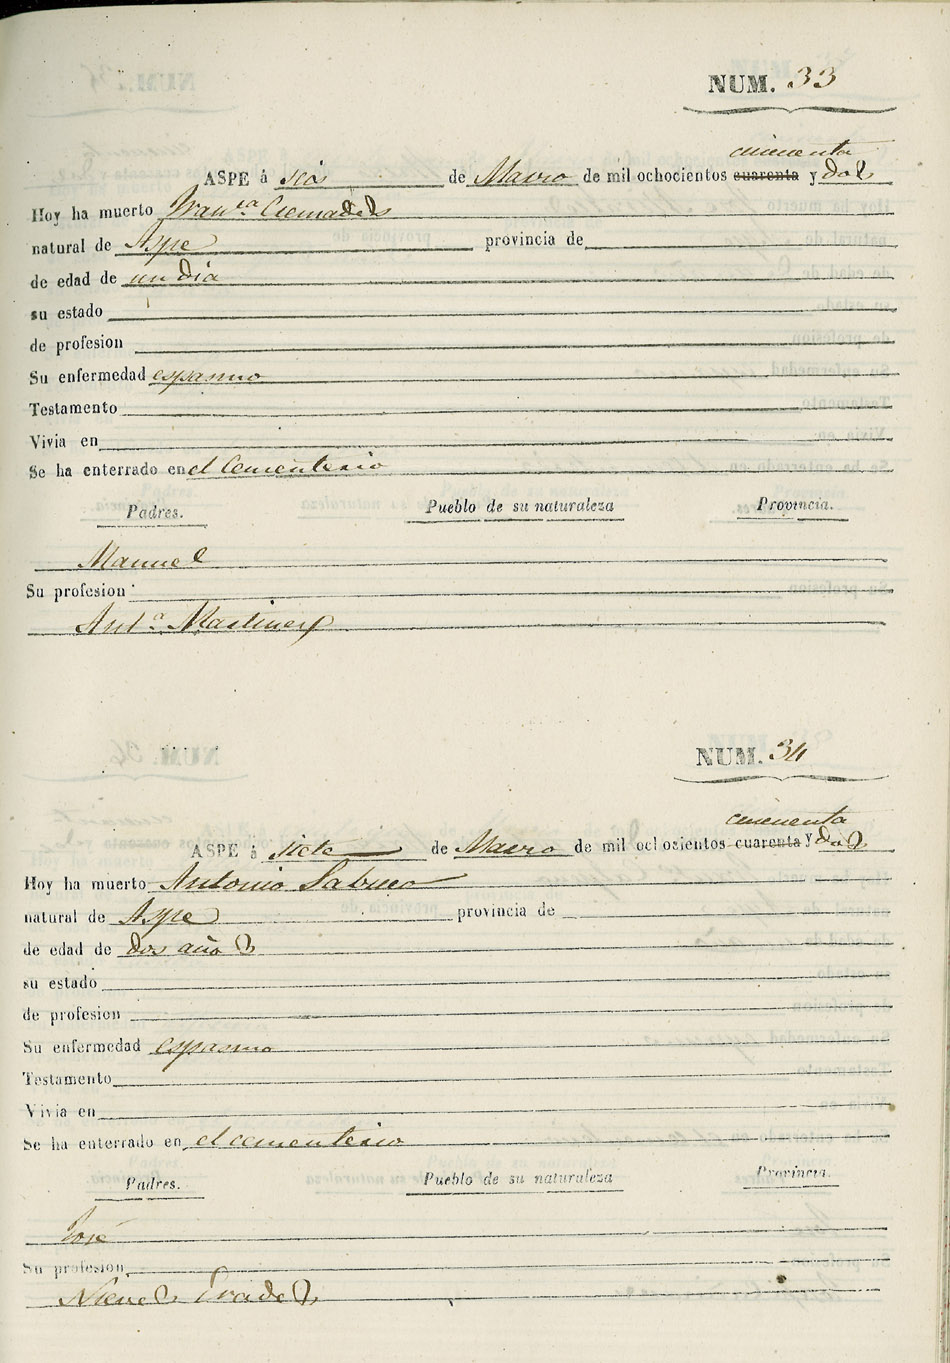 NUM. 33
cincuenta
ASPE á seis de Marzo de mil ochocientos cuarenta y dos
Hoy ha muerto Fran.ca Cremades
natural de Aspe provincia de
de edad de un dia
su estado
de profesion
Su enfermedad espasmo
Testamento
Vivia en
Se ha enterrado en el Cementerio
Padres. Pueblo de su naturaleza Provincia.
Manuel
Su profesion
Ant.a Martinez
NUM. 34
cincuenta
ASPE á siete de Marzo de mil ochocientos cuarenta y dos
Hoy ha muerto Antonio Sabuco
natural de Aspe provincia de
de edad de dos años
su estado
de profesion
Su enfermedad espasmo
Testamento
Vivia en
Se ha enterrado en el cementerio
Padres. Pueblo de su naturaleza Provincia.
José
Su profesion
Nieves Prades